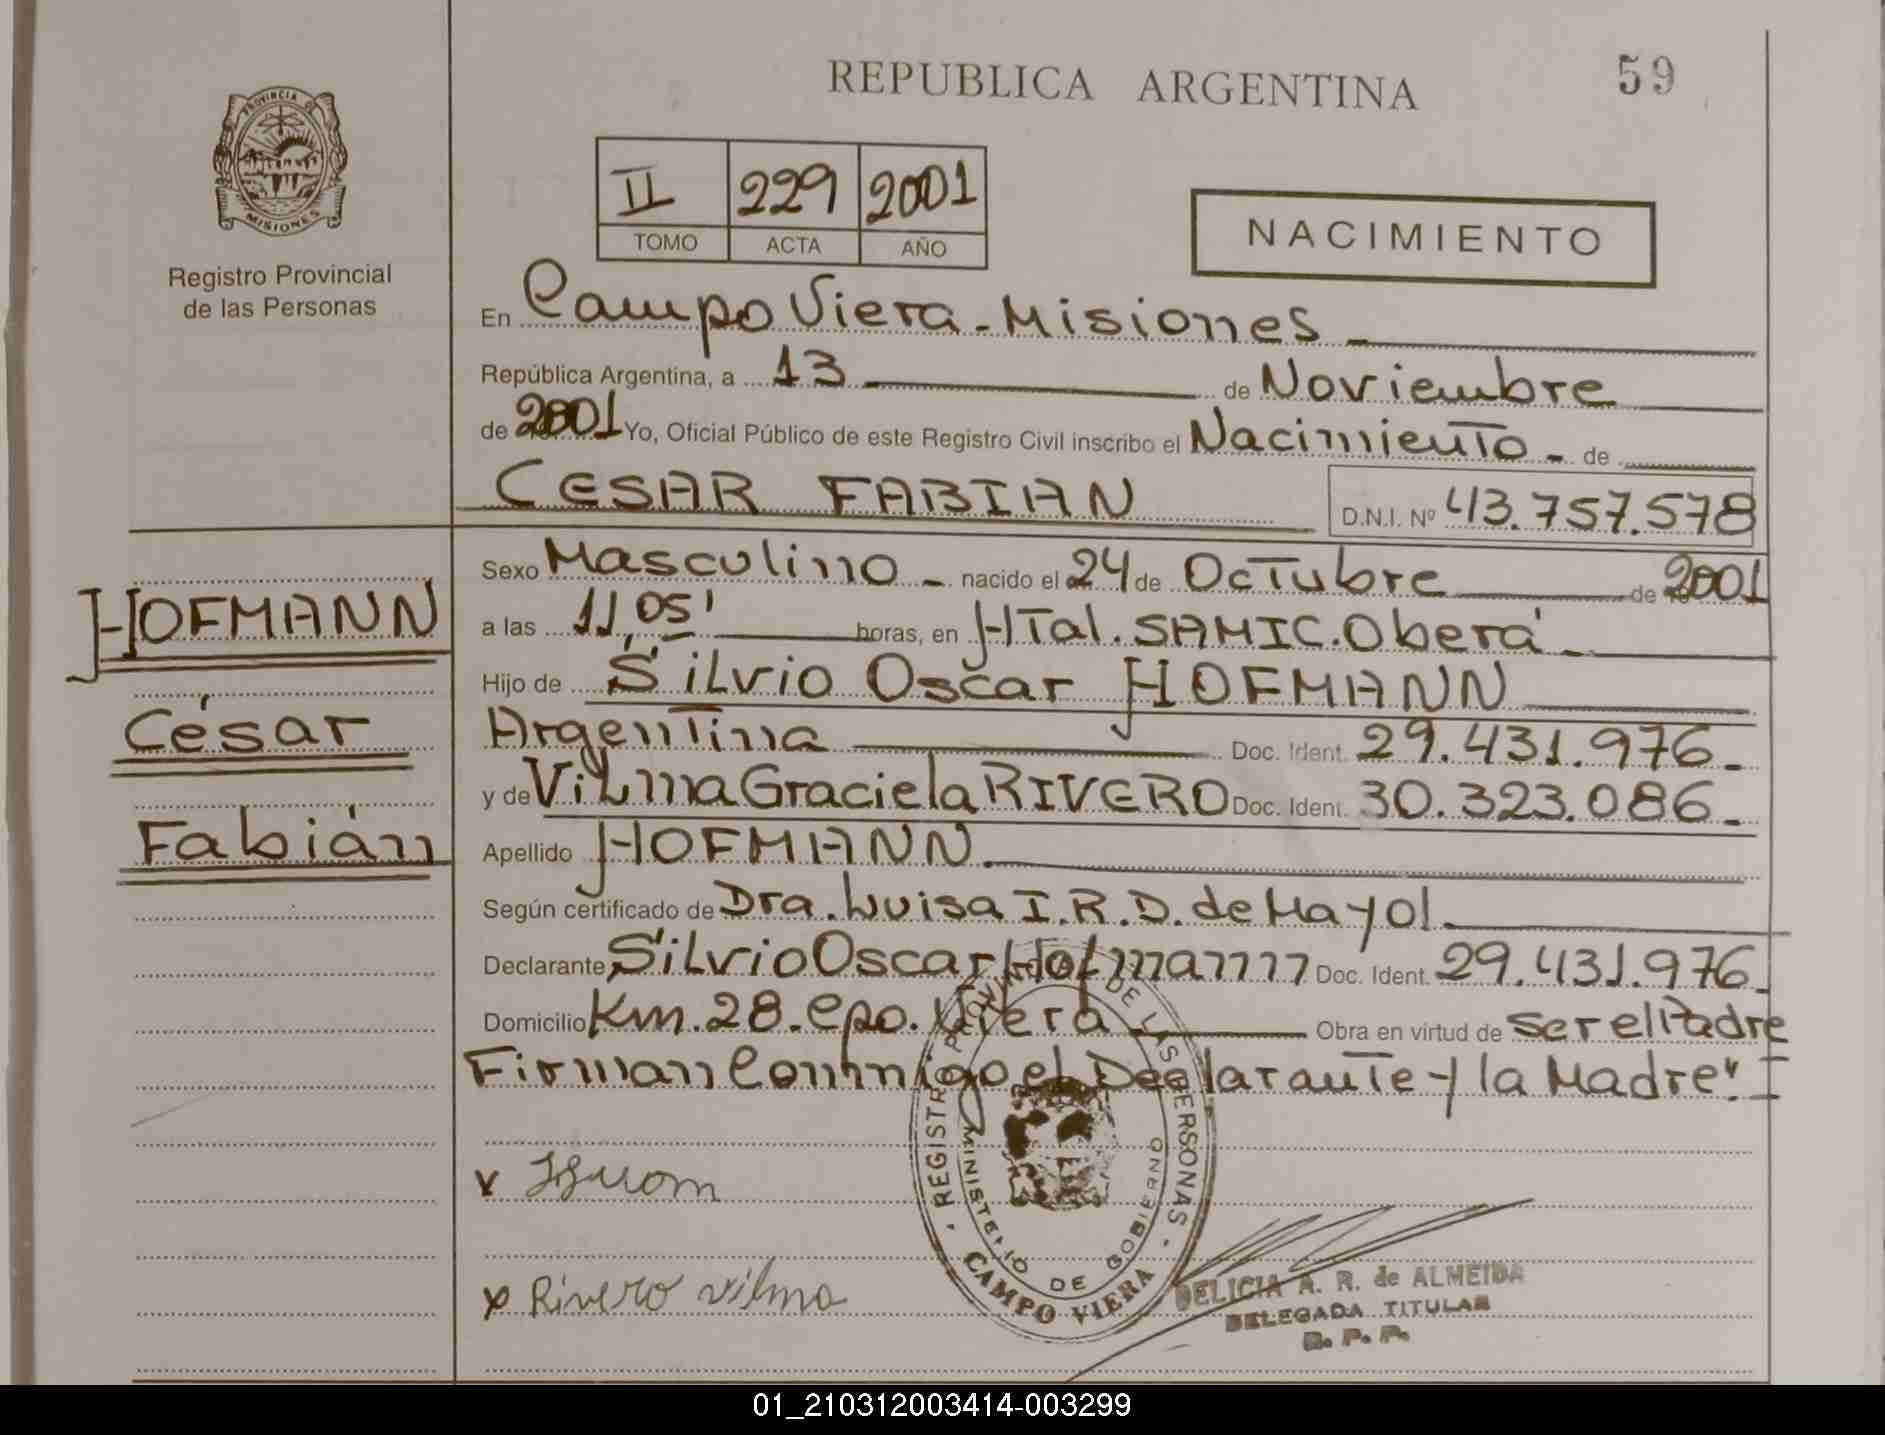 REPUBLICA ARGENTINA
59
PROVINCIA DE
MISIONES
Registro Provincial
de las Personas
II 229 2001
TOMO ACTA AÑO
NACIMIENTO
En Campo Viera - Misiones
República Argentina, a 13 de Noviembre
de 2001 Yo, Oficial Público de este Registro Civil inscribo el Nacimiento - de
CESAR FABIAN D.N.I. Nº 43.757.578
HOFMANN
César
Fabián
Sexo Masculino - nacido el 24 de Octubre de 2001
a las 11,05' horas, en HTal. SAMIC. Oberá -
Hijo de Silvio Oscar HOFMANN
Argentina Doc. Ident. 29.431.976 -
y de Vilma Graciela RIVERO Doc. Ident. 30.323.086 -
Apellido HOFMANN
Según certificado de Dra. Luisa I.R.D. de Mayol
Declarante Silvio Oscar Hofmann Doc. Ident. 29.431.976
Domicilio Km. 28. Cpo. Viera Obra en virtud de ser el Padre
Firman Conmigo el Declarante y la Madre"
REGISTRO PROVINCIAL DE LAS PERSONAS
MINISTERIO DE GOBIERNO
CAMPO VIERA
x Rivero Vilma
DELICIA A. R. de ALMEIDA
DELEGADA TITULAR
R. P. P.
01_210312003414-003299